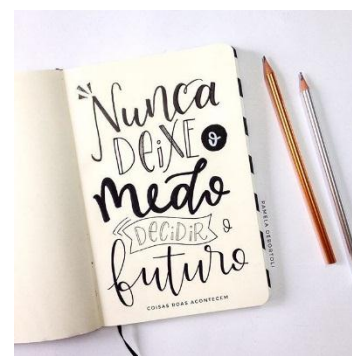 Nunca
DEiXE o
medo
DECiDiR o
futuro
COISAS BOAS ACONTECEM
PAMELA DEBORTOLI